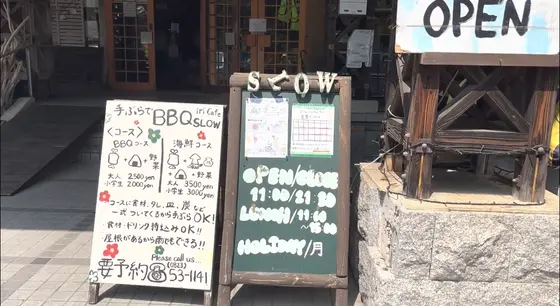 手ぶらで BBQ iri Cafe SLOW
〈コース〉
BBQコース
+野菜
大人 2500yen
小学生 2000yen
海鮮コース
+野菜
大人 3500yen
小学生 3000yen
コースに食材、タレ、皿、炭など
一式ついてくるから手ぶらOK!
食材・ドリンク持込みOK!!
屋根があるから雨でもできる!!
Please call us...
要予約 (0823) 53-1141
SLOW
OPEN/CLOSE
11:00/21:30
LUNCH/11:00
~15:00
HOLIDAY/月
OPEN